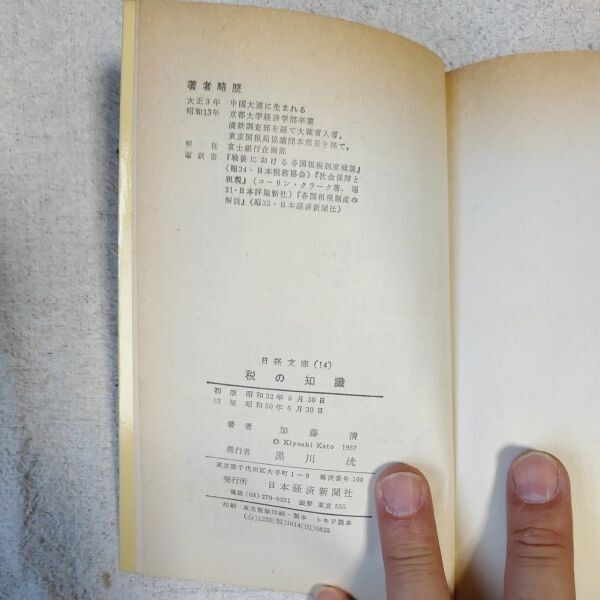 著者略歴
大正3年 中国大連に生まれる
昭和13年 京都大学経済学部卒業
満鉄調査部を経て大蔵省入省。
東京国税局協議団本部長を経て。
現在 富士銀行企画部
著訳書 『戦後における各国租税制度概説』
(昭24・日本税務協会)『社会保障と
租税』(コーリン・クラーク著, 昭
31・日本評論新社)『各国租税制度の
解説』(昭33・日本経済新聞社)
日経文庫(14)
税の知識
初版 昭和32年5月30日
33版 昭和50年6月30日
著者 加藤清
© Kiyoshi Kato 1957
発行者 黒川洸
東京都千代田区大手町1-9 郵便番号100
発行所 日本経済新聞社
電話(03)270-0251 振替 東京 555
印刷 東光整版印刷・製本 トキワ製本
(分)1233(製)1014(出)5825